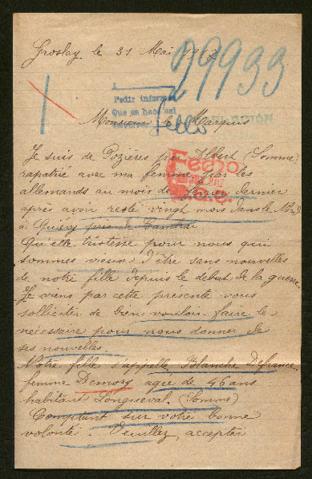 Groslay le 31 Mai
29933
1
Pedir inform
Que se haga así
Monsieur le Marquis
Je suis de Pozières près Albert (Somme)
rapatrié avec ma femme par les
allemands au mois de dernier
après avoir resté vingt mois dans le Nord
à près de
Quelle tristesse pour nous qui
sommes vieux d'être sans nouvelles
de notre fille depuis le début de la guerre
Je viens par cette présente vous
solliciter de bien vouloir faire le
nécessaire pour nous donner de
ses nouvelles.
Notre fille s'appelle Blanche
femme agée de 46 ans
habitant Longueval (Somme)
Comptant sur votre bonne
volonté. Veuillez accepter